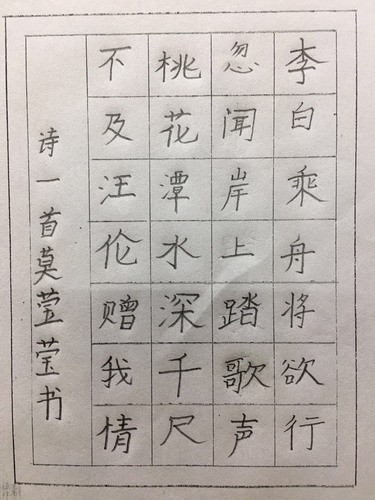 李白乘舟将欲行
忽闻岸上踏歌声
桃花潭水深千尺
不及汪伦赠我情
诗一首莫萱莹书